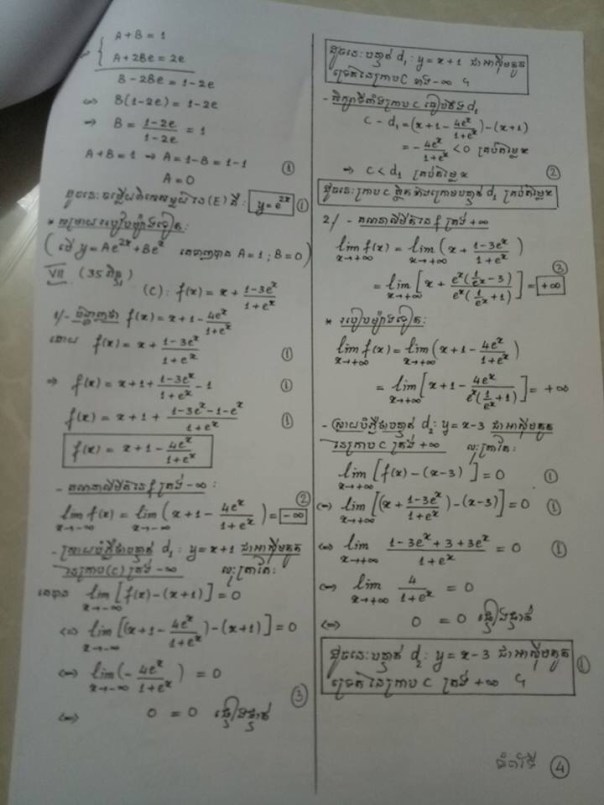 A + B = 1
A + 2Be = 2e
B - 2Be = 1 - 2e
⇔ B(1-2e) = 1-2e
⇒ B = (1-2e)/(1-2e) = 1
A + B = 1 ⇒ A = 1 - B = 1 - 1 ①
A = 0
ដូចនេះ ចម្លើយ (E) គឺ : y = e^{2x} ①
* របៀបម្យ៉ាងទៀត:
( បើ y = Ae^{2x} + Be^x គេទាញបាន A = 1 ; B = 0 )
VII (35 ពិន្ទុ)
(C) : f(x) = x + (1-3e^x)/(1+e^x)
1/- បង្ហាញថា f(x) = x + 1 - 4e^x/(1+e^x)
ដោយ f(x) = x + (1-3e^x)/(1+e^x) ①
⇒ f(x) = x + 1 + (1-3e^x)/(1+e^x) - 1 ①
f(x) = x + 1 + (1-3e^x-1-e^x)/(1+e^x) ①
f(x) = x + 1 - 4e^x/(1+e^x)
- គណនាលីមីតនៃ f ត្រង់ -∞ :
lim_{x→-∞} f(x) = lim_{x→-∞} (x + 1 - 4e^x/(1+e^x)) = -∞ ②
- ស្រាយបំភ្លឺថាបន្ទាត់ d₁ : y = x+1 ជាអាស៊ីមតូត
នៃក្រាប (C) ត្រង់ -∞ លុះត្រាតែ:
គេបាន lim_{x→-∞} [f(x) - (x+1)] = 0
⇔ lim_{x→-∞} [(x + 1 - 4e^x/(1+e^x)) - (x+1)] = 0
⇔ lim_{x→-∞} (- 4e^x/(1+e^x)) = 0 ③
⇔ 0 = 0 ផ្ទៀងផ្ទាត់
ដូចនេះ បន្ទាត់ d₁ : y = x+1 ជាអាស៊ីមតូត
ទ្រេតនៃក្រាប C ខាង -∞ ។
- សិក្សាទីតាំងក្រាប C ធៀបនឹង d₁
C - d₁ = (x + 1 - 4e^x/(1+e^x)) - (x+1)
= - 4e^x/(1+e^x) < 0 គ្រប់តម្លៃ x
⇒ C < d₁ គ្រប់តម្លៃ x ②
ដូចនេះ ក្រាប C ស្ថិតខាងក្រោមបន្ទាត់ d₁ គ្រប់តម្លៃ x
2/- គណនាលីមីតនៃ f ត្រង់ +∞
lim_{x→+∞} f(x) = lim_{x→+∞} (x + (1-3e^x)/(1+e^x))
= lim_{x→+∞} [x + e^x(1/e^x - 3)/(e^x(1/e^x + 1))] = +∞ ③
* របៀបម្យ៉ាងទៀត:
lim_{x→+∞} f(x) = lim_{x→+∞} (x + 1 - 4e^x/(1+e^x))
= lim_{x→+∞} [x + 1 - 4e^x/(e^x(1/e^x + 1))] = +∞
- ស្រាយបំភ្លឺថាបន្ទាត់ d₂ : y = x-3 ជាអាស៊ីមតូត
នៃក្រាប C ត្រង់ +∞ លុះត្រាតែ:
lim_{x→+∞} [f(x) - (x-3)] = 0 ①
⇔ lim_{x→+∞} [(x + (1-3e^x)/(1+e^x)) - (x-3)] = 0 ①
⇔ lim_{x→+∞} (1-3e^x+3+3e^x)/(1+e^x) = 0 ①
⇔ lim_{x→+∞} 4/(1+e^x) = 0
⇔ 0 = 0 ផ្ទៀងផ្ទាត់
ដូចនេះ បន្ទាត់ d₂ : y = x-3 ជាអាស៊ីមតូត ①
ទ្រេតនៃក្រាប C ត្រង់ +∞ ។
ទំព័រទី ④